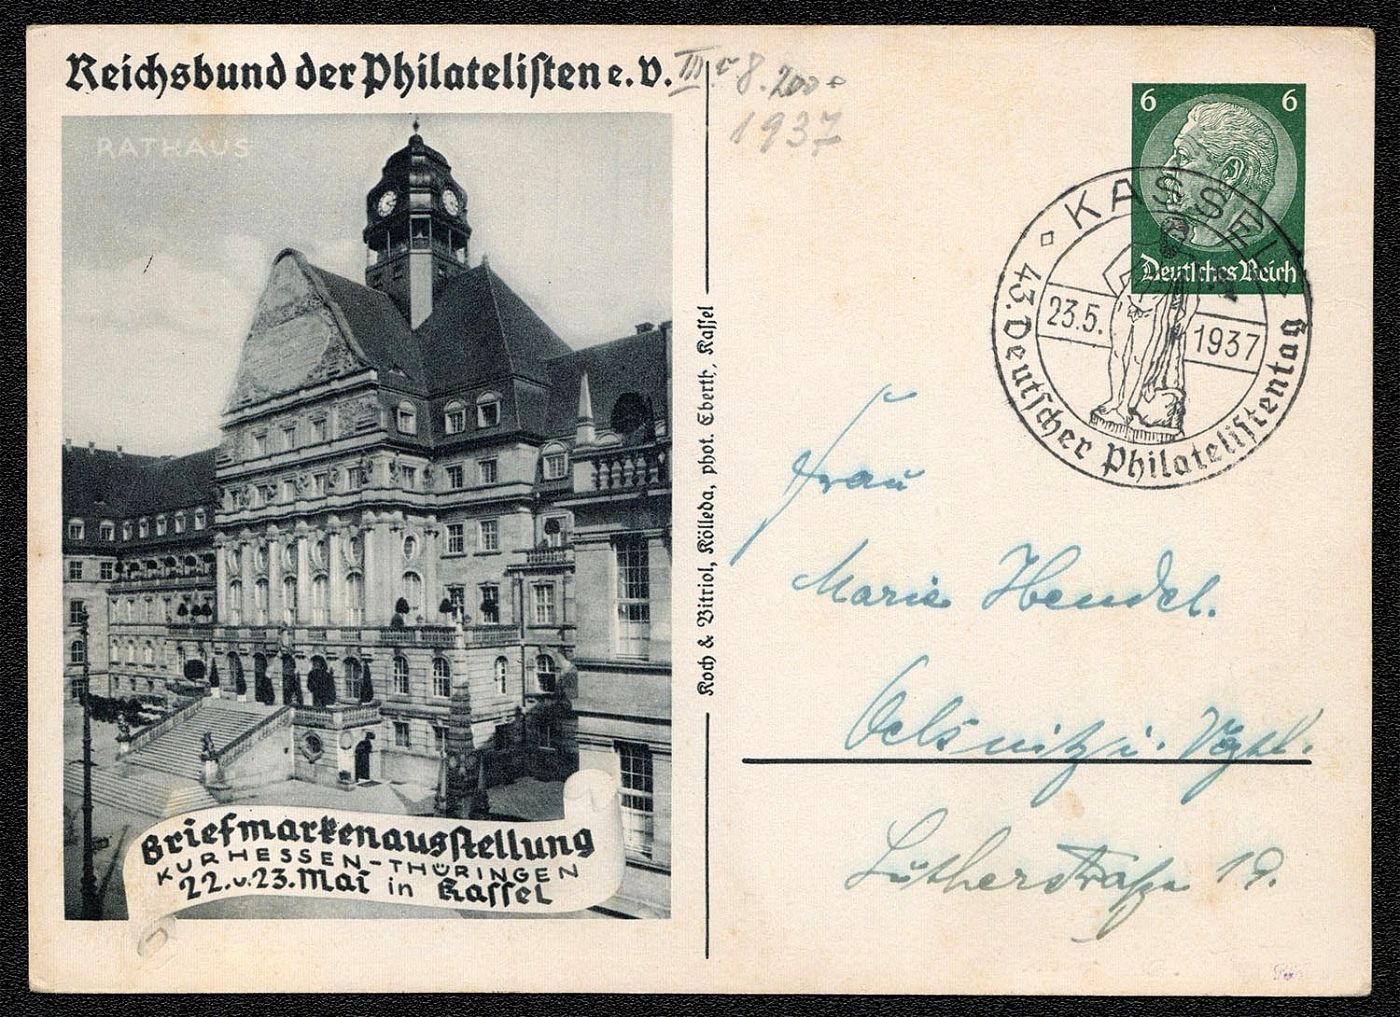 Reichsbund der Philatelisten e.V.
III v 8.
1937
RATHAUS
6 6
Deutsches Reich
KASSEL
43. Deutscher Philatelistentag
23.5. 1937
Koch & Bitriol, Kölleda, phot. Eberth, Kassel
Frau
Marie Hendel.
Oelsnitz i. Vogtl.
Lutherstraße 19.
Briefmarkenausstellung
KURHESSEN-THÜRINGEN
22. u. 23. Mai in Kassel